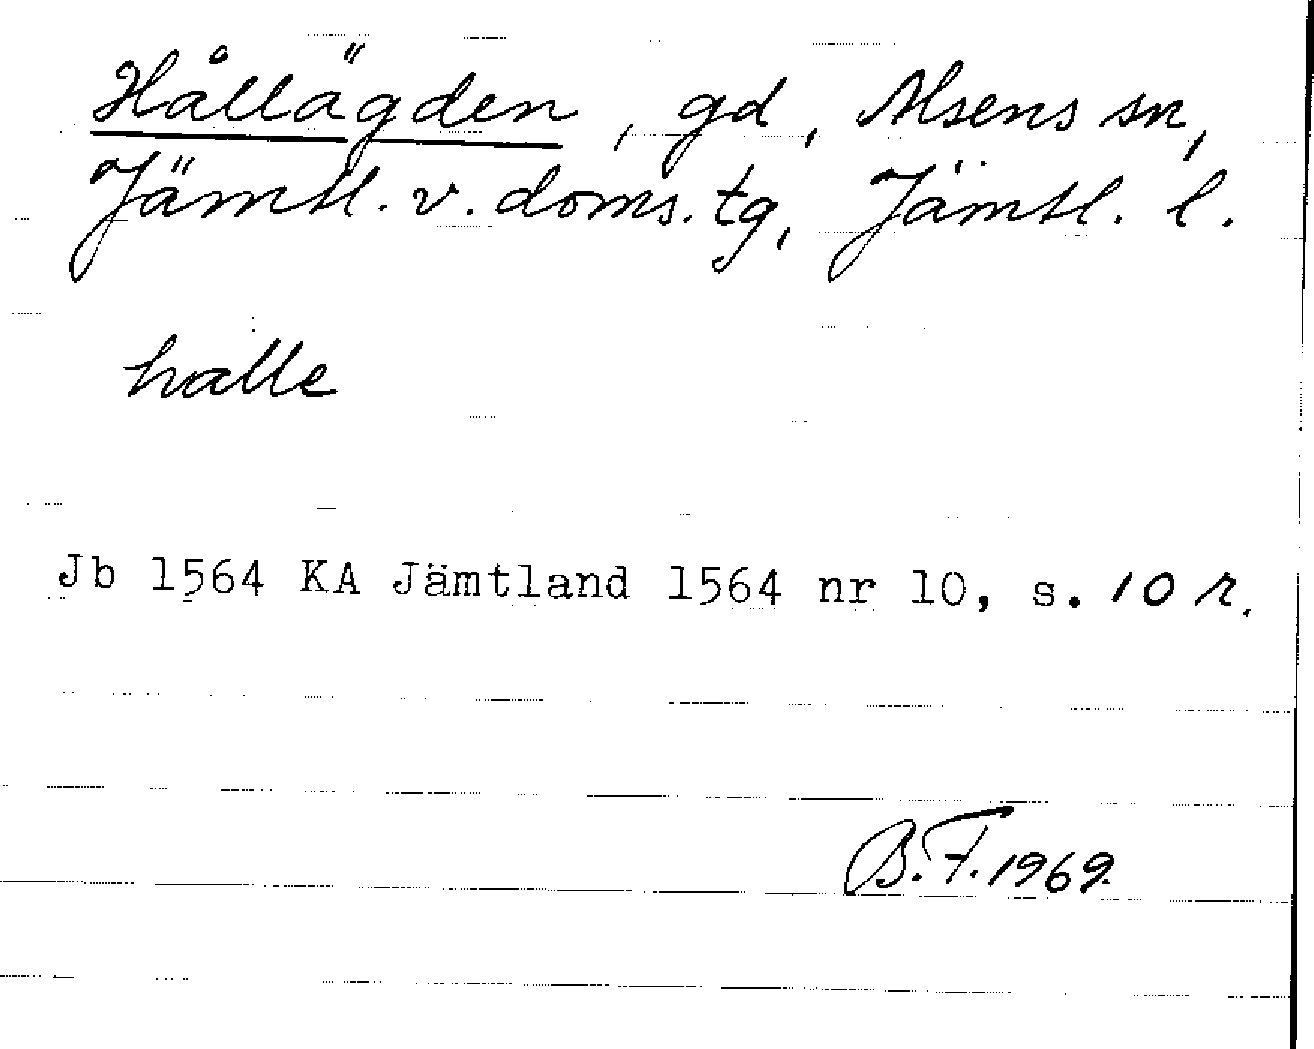 Hållägden, gd, Alsens sn,
Jämtl. v. doms. tg, Jämtl. l.
halle
Jb 1564 KA Jämtland 1564 nr 10, s. 10 r.
B.F. 1969.